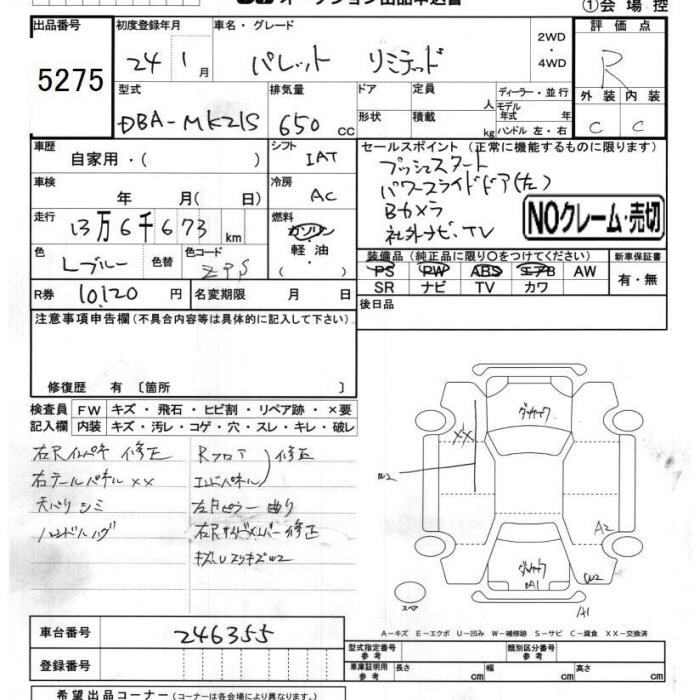 オークション出品申込書
①会場控
出品番号
5275
初度登録年月
24 1月
車名・グレード
パレット リミテッド
2WD
・
4WD
評価点
R
外装 内装
C C
型式
DBA-MK21S
排気量
650 cc
ドア
形状
定員 人
積載 kg
ディーラー・並行
モデル年式 年
ハンドル 左・右
車歴
自家用・( )
シフト
IAT
セールスポイント(正常に機能するものに限ります)
プッシュスタート
パワースライドドア(左)
Bカメラ
社外ナビ、TV
NOクレーム・売切
車検
年 月(日)
冷房
AC
走行
13万6千673 km
燃料
ガソリン
・
軽油
・
( )
色
Lブルー
色替
色コード
ZPS
装備品(純正品に限り○をつけてください)
PS PW ABS エアB AW
SR ナビ TV カワ
新車保証書
有・無
R券
10,120 円
名変期限 月 日
後日品
注意事項申告欄(不具合内容等は具体的に記入して下さい)
修復歴 有〔箇所 〕
検査員 FW キズ・飛石・ヒビ割・リペア跡・×要
記入欄 内装 キズ・汚レ・コゲ・穴・スレ・キレ・破レ
右Rインパネ 修正
右テールパネル XX
天バリシミ
ハンドルハゲ
Rフロア
エンドパネル
修正
左Fピラー曲り
右Rサイドメンバー修正
キズUスリキズW2
ダッチャク
XX
W2
A2
W2
ダッチャク
A1
A1
スペア
A-キズ E-エクボ U-凹み W-補修跡 S-サビ C-腐食 XX-交換済
車台番号
246355
登録番号
型式指定番号
参考
類別区分番号
参考
車庫証明用
参考
長さ cm
幅 cm
高さ cm
希望出品コーナー(コーナーは各会場により異なります)